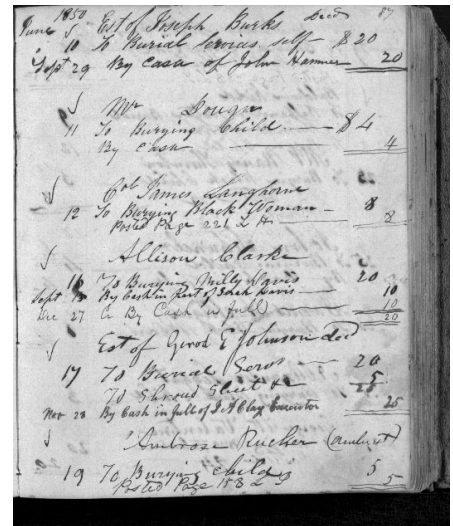 1850 Est of Joseph Burks Decd 87
June
10 To Burial Services self $20
Sept 29 By Cash of John Hamner 20
Mr Dougn
11 To Burying Child $4
By Cash 4
Col James Langhorne
12 To Burying Black Woman 8
Posted Page 221 L 8
Allison Clarke
16 To Burying Milly Davis 20
Sept By Cash in part of Davis 10
Dec 27 By Cash in full 10
20
Est of E Johnson decd
17 To Burial Serv 20
To Shroud Sheet &c 5
Nov 28 By Cash in full of Clay Executor 25
Ambrose Rucker (Amherst)
19 To Burying child 5
Posted Page 153 L 5